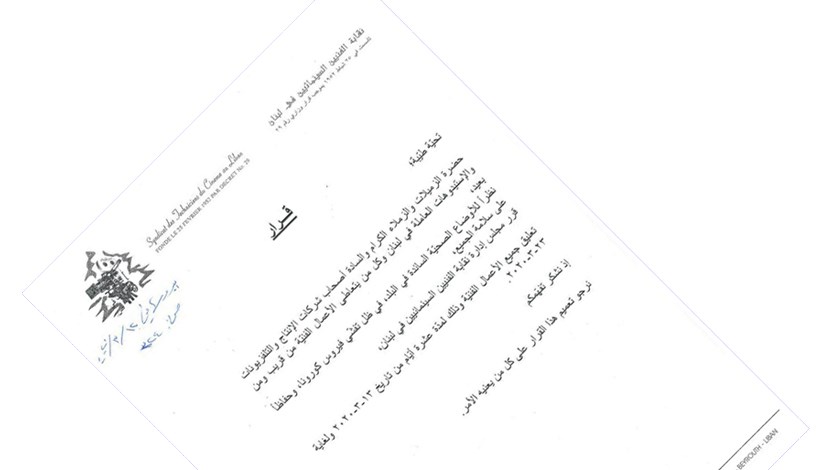 نقابة الفنيين السينمائيين في لبنان
Syndicat des Techniciens du Cinema au Liban
FONDE LE 25 FEVRIER 1952 PAR DECRET No. 29
قرار
تحيّة طيّبة،
حضرة الزميلات والزملاء الكرام والسادة أصحاب شركات الإنتاج والتلفزيونات
والإستديوهات العاملة في لبنان وكل من يتعاطى الأعمال الفنيّة من قريب ومن
بعيد،
نظراً للأوضاع الصحيّة السائدة في البلاد، في ظل تفشّي فيروس كورونا، وحفاظاً
على سلامة الجميع،
قرر مجلس إدارة نقابة الفنيين السينمائيين في لبنان،
تعليق جميع الأعمال الفنيّة وذلك لمدة عشرة أيّام من تاريخ ١٣-٣-٢٠٢٠ ولغاية
٢٣-٣-٢٠٢٠.
إذ نشكر تفهّمكم
نرجو تعميم هذا القرار على كل من يعنيه الأمر.
BEYROUTH - LIBAN